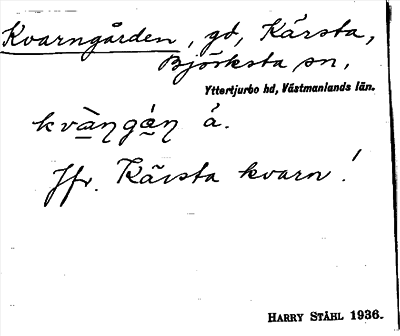 Kvarngården, gd, Kärsta,
Björksta sn,
Yttertjurbo hd, Västmanlands län.
kvàŋgáŋ å.
Jfr. Kärsta kvarn!
HARRY STÅHL 1936.